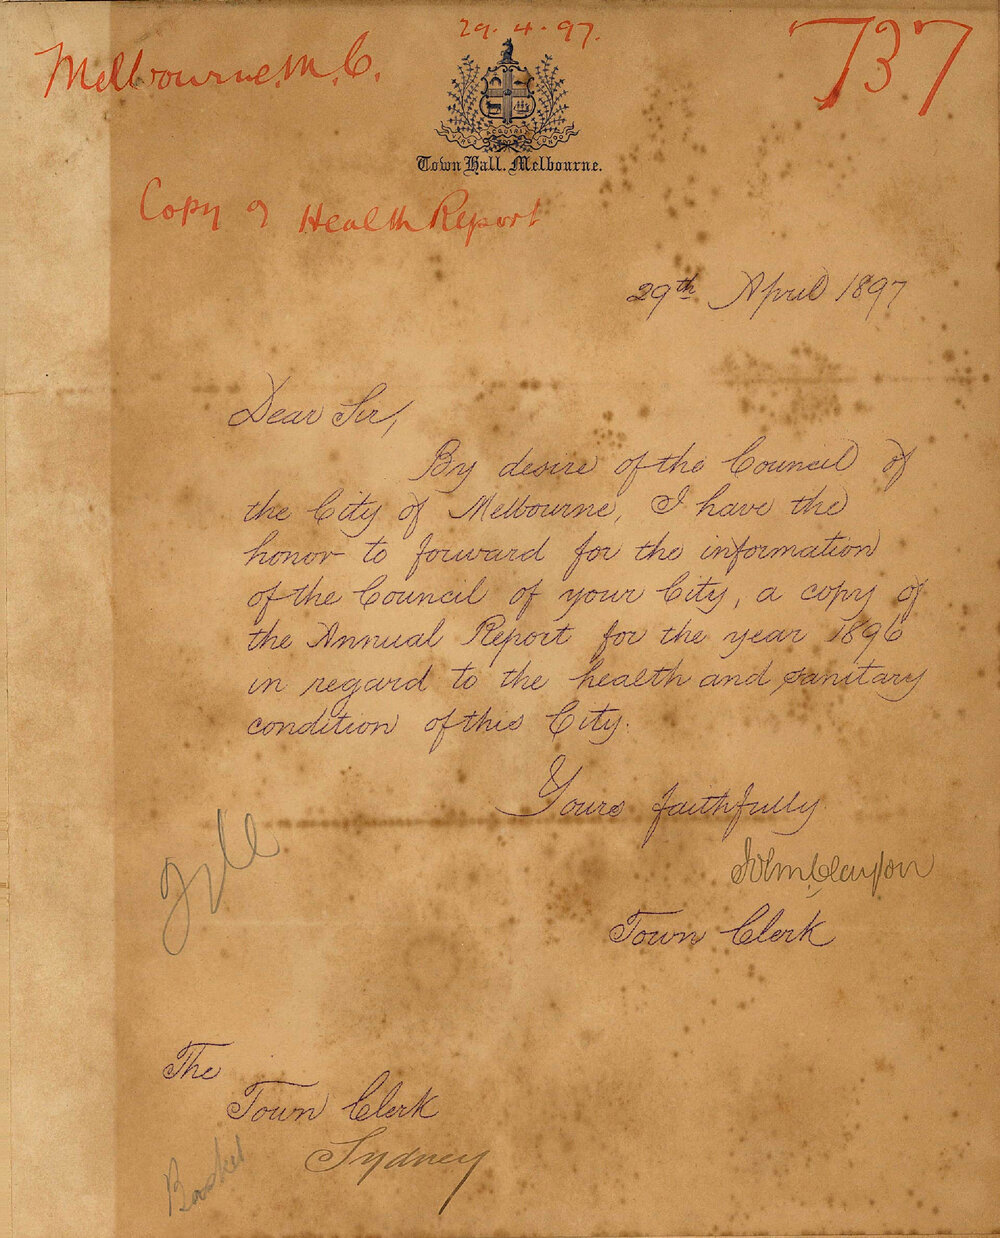 29.4.97.
Melbourne M.C.
737
Town Hall. Melbourne.
Copy of Health Report
29th April 1897
Dear Sir,
By desire of the Council of
the City of Melbourne, I have the
honor to forward for the information
of the Council of your City, a copy of
the Annual Report for the year 1896
in regard to the health and sanitary
condition of this City.
Yours faithfully
Jno Clayton
Town Clerk
The
Town Clerk
Sydney